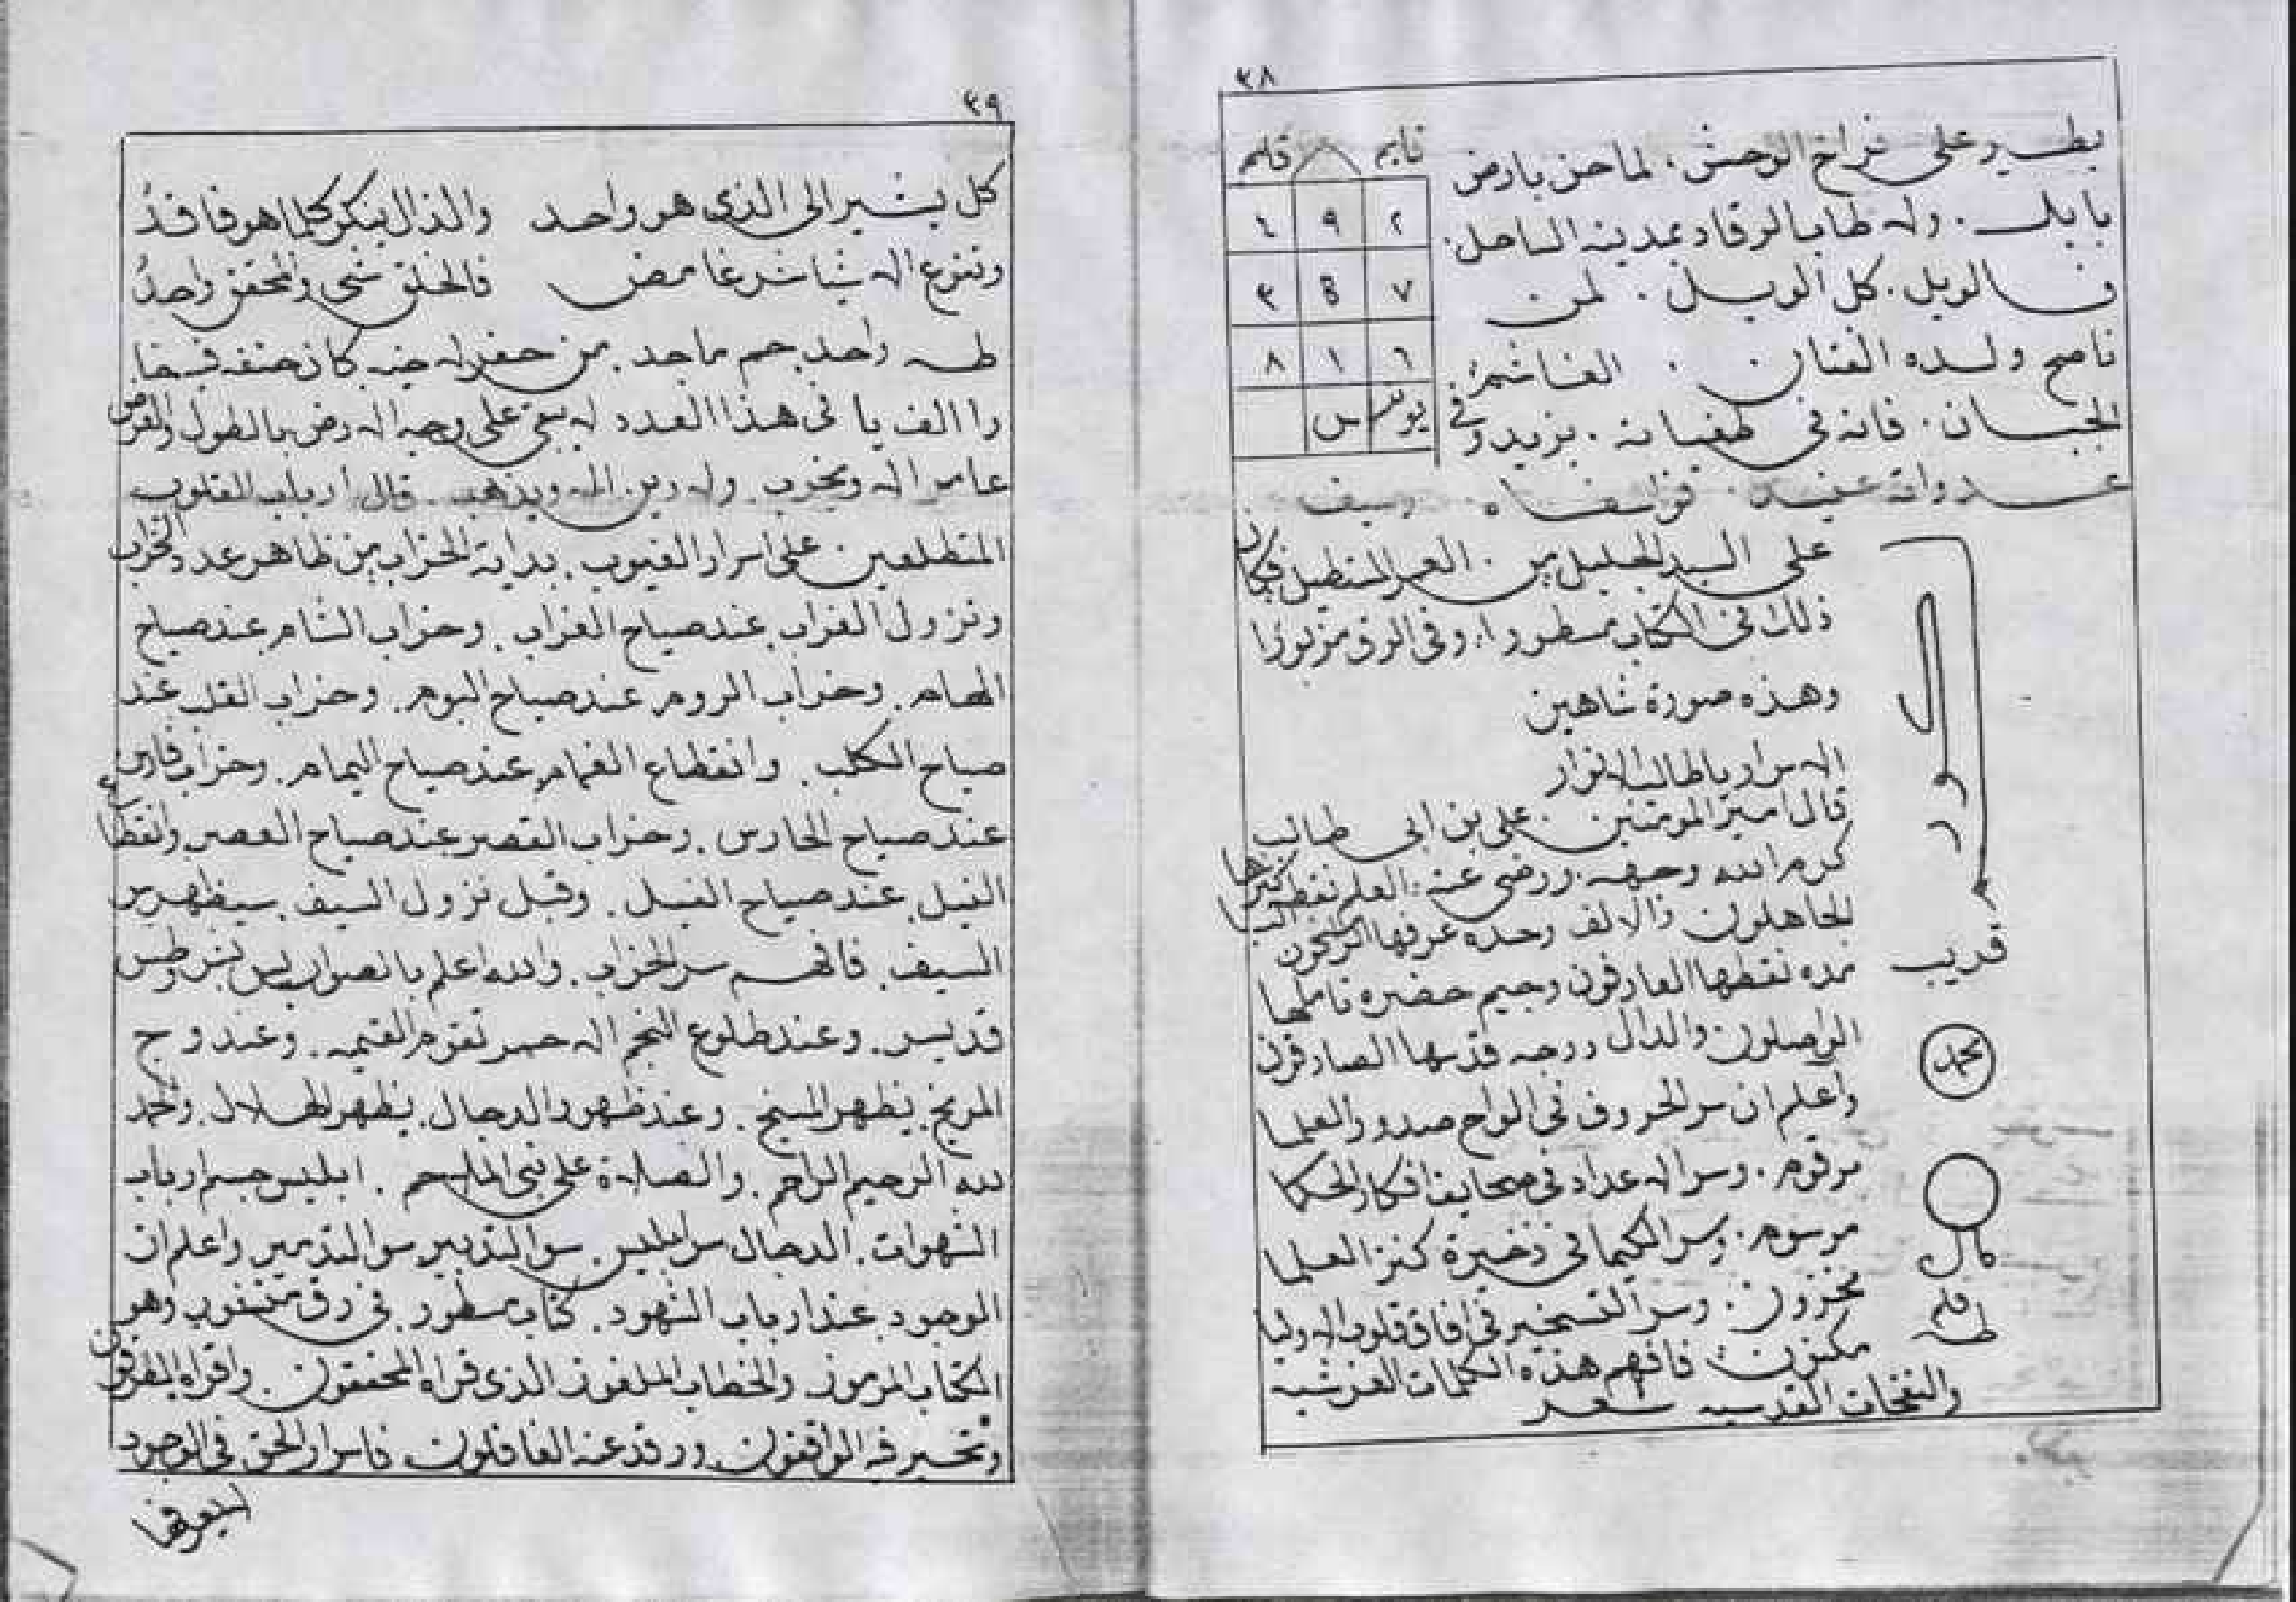 ٣٨
قايم قايم
يطير على فراخ الوحش. لما حن بارض
٢ ٩ ٤
بابك. ولا طاب الرقاد بمدينه الساحل.
٧ ٥ ٣
فالويل. كل الويل. لمن
٦ ١ ٨
ناصح ولده الفتان. الغاشم
يونس س
الجبان. فانه في طغيانه. يزيد وفي
على السيد الجليل من. العمر المستطيل فكان
ذلك في الكتاب مسطورا. وفي الرق مزبورا
وهذه صورة شاهين
الاسرار يا طالب الانوار
قال امير المومنين. على بن ابي طالب
كرم الله وجهه. ورضي عنه. العلم نقطه كثرها
الجاهلون والالف وحده عرفها الراسخون
مده نقطها العارفون وجيم حضره تاملها
قريب
الواصلون والدال درجه قدسها الصادقون
محمد
واعلم ان سر الحروف في الواح صدور العلما
مرقوم. وسر الاعداد في صحايف افكار الحكما
مرسوم. وسر الكيميا في ذخيرة كنز العلما
مخزون. وسر التسخير في افاق قلوب الاوليا
مكنون. فافهم هذه الكلمات العرشيه
والنفخات القدسيه شعر
٣٩
كل يشير الى الذي هو واحد والذال ينكر كلما هو فاقدُ
فالخلق شي والمحقق واحدُ
طه واحد جم ماجد. من حفر لاخيه كان حتفه فيها.
را الف يا في هذا العدد لا يبقى على وجه الارض بالطول والعرض
عامر الا ويخرب. ولا دين الا ويذهب. قال ارباب القلوب
المتطلعين على اسرار الغيوب. بداية الخراب من ظاهر عدد الخراب
ونزول الغراب عند صياح الغراب. وخراب الشام عند صياح
الهام. وخراب الروم عند صياح البوم. وخراب القلب عند
صياح الكلب. وانقطاع الغمام عند صياح اليمام. وخراب فارس
عند صياح الحارس. وخراب القصر عند صياح العصر وانقطاع
النيل. عند صياح الفيل. وقبل نزول السيف. سيظهر من
السيف. فافهم سر الخراب. والله اعلم بالصواب
قديس. وعند طلوع النجم الاحمر تقوم القيمه. وعند وج
المريخ. يظهر المسيخ. وعند ظهور الدجال. يظهر الهلال. والحمد
لله الرحيم الراحم. والصلاة على نبي الملاحم. ابليس جسم ارباب
الشهوات. الدجال سر ابليس. سر التدبير سر التدمير واعلم ان
الوجود. عند ارباب الشهود. كتاب مسطور. في رق منشور. وهو
الكتاب المرموز. والخطاب الملغوز. الذي قراه المحققون. واقراه المقربون
وتحير فيه الواقفون. ورقد عنه الغافلون. فاسرار الحق في الوجود